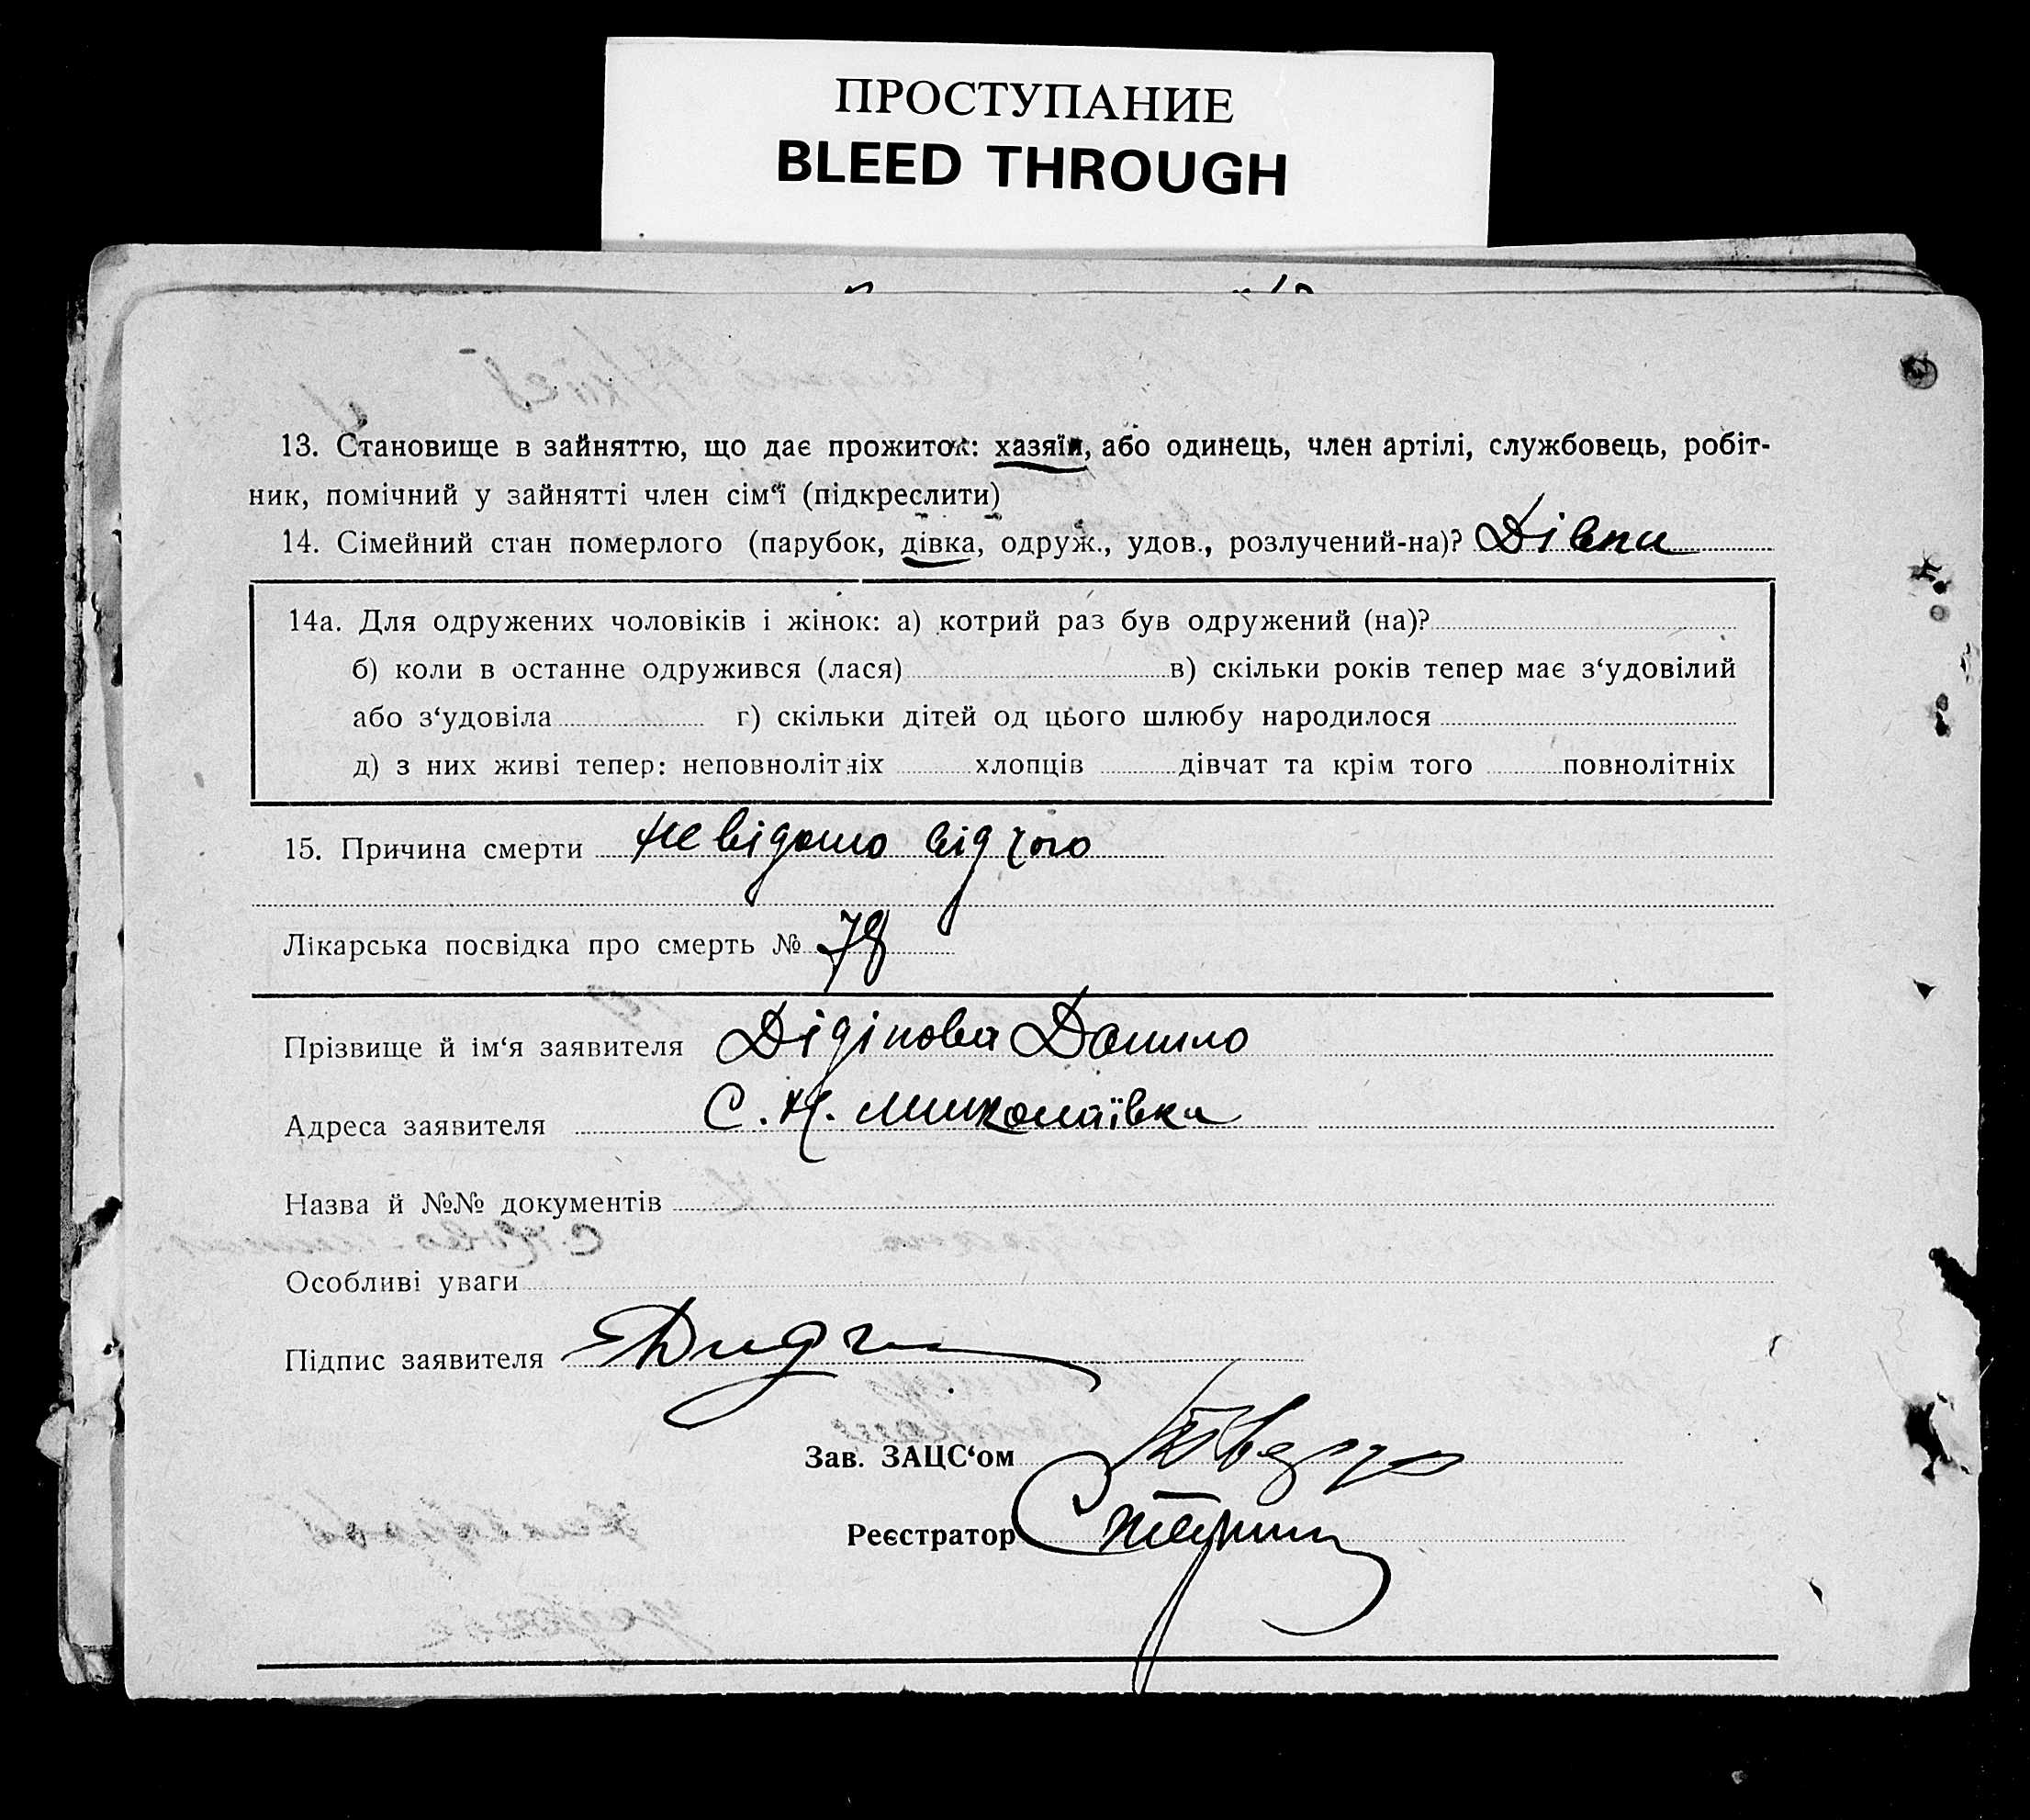 ПРОСТУПАНИЕ
BLEED THROUGH
13. Становище в зайняттю, що дає прожиток: хазяїн, або одинець, член артілі, службовець, робіт-
ник, помічний у зайнятті член сім‘ї (підкреслити)
14. Сімейний стан померлого (парубок, дівка, одруж., удов., розлучений-на)? Дівка
14а. Для одружених чоловіків і жінок: а) котрий раз був одружений (на)?
б) коли в останне одружився (лася) в) скільки років тепер має з‘удовілий
або з‘удовіла г) скільки дітей од цього шлюбу народилося
д) з них живі тепер: неповнолітніх хлопців дівчат та крім того повнолітніх
15. Причина смерти Невідомо від чого
Лікарська посвідка про смерть №
Прізвище й ім‘я заявителя Данило
Адреса заявителя С. Н. Миколаївка
Назва й №№ документів
Особливі уваги
Підпис заявителя
Зав. ЗАЦС‘ом
Реєстратор